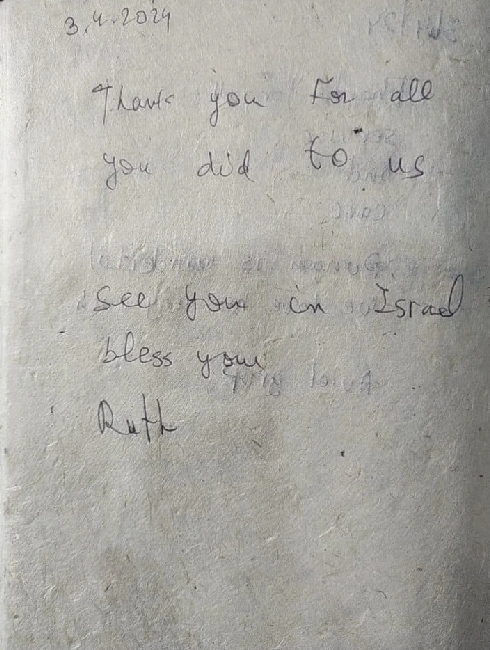 3.4.2024
Thank you for all
you did to us
see you in Israel
bless you
Ruth